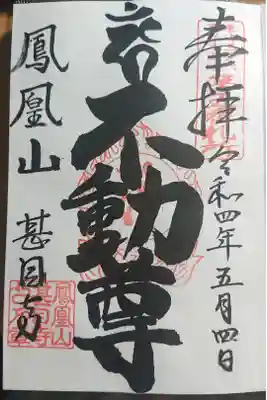 奉拝
令和四年五月四日
不動尊
鳳凰山
甚目寺
鳳凰山